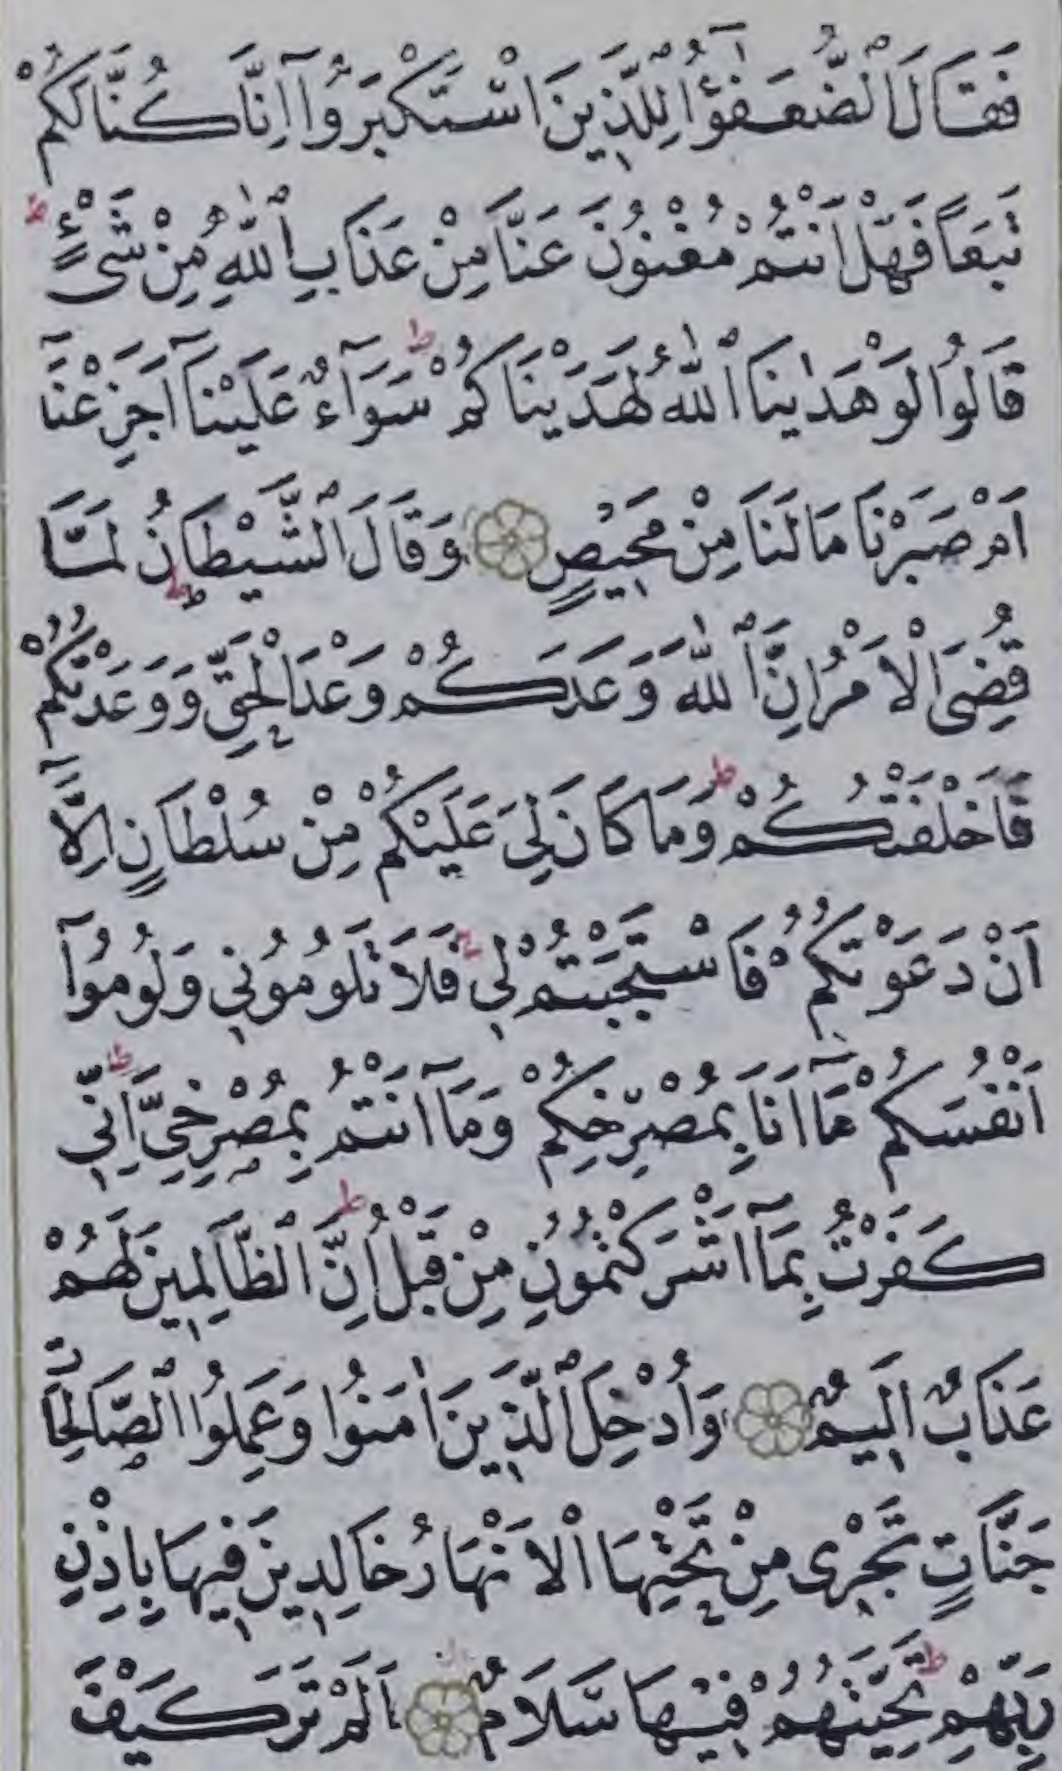 فَقَالَ الضُّعَفٰٓؤُا لِلَّذ۪ينَ اسْتَكْبَرُٓوا اِنَّا كُنَّا لَكُمْ
تَبَعًا فَهَلْ اَنْتُمْ مُغْنُونَ عَنَّا مِنْ عَذَابِ اللّٰهِ مِنْ شَىْءٍۜ
قَالُوا لَوْ هَدٰينَا اللّٰهُ لَهَدَيْنَاكُمْۜ سَوَٓاءٌ عَلَيْنَٓا اَجَزِعْنَٓا
اَمْ صَبَرْنَا مَا لَنَا مِنْ مَح۪يصٍ ۝ وَقَالَ الشَّيْطَانُ لَمَّا
قُضِىَ الْاَمْرُ اِنَّ اللّٰهَ وَعَدَكُمْ وَعْدَ الْحَقِّ وَوَعَدْتُكُمْ
فَاَخْلَفْتُكُمْۜ وَمَا كَانَ لِىَ عَلَيْكُمْ مِنْ سُلْطَانٍ اِلَّٓا
اَنْ دَعَوْتُكُمْ فَاسْتَجَبْتُمْ ل۪يۚ فَلَا تَلُومُون۪ي وَلُومُٓوا
اَنْفُسَكُمْ مَٓا اَنَا۬ بِمُصْرِخِكُمْ وَمَٓا اَنْتُمْ بِمُصْرِخِىَّۜ اِنّ۪ي
كَفَرْتُ بِمَٓا اَشْرَكْتُمُونِ مِنْ قَبْلُۜ اِنَّ الظَّالِم۪ينَ لَهُمْ
عَذَابٌ اَل۪يمٌ ۝ وَاُدْخِلَ الَّذ۪ينَ اٰمَنُوا وَعَمِلُوا الصَّالِحَاتِ
جَنَّاتٍ تَجْر۪ى مِنْ تَحْتِهَا الْاَنْهَارُ خَالِد۪ينَ ف۪يهَا بِاِذْنِ
رَبِّهِمْۜ تَحِيَّتُهُمْ ف۪يهَا سَلَامٌ ۝ اَلَمْ تَرَ كَيْفَ